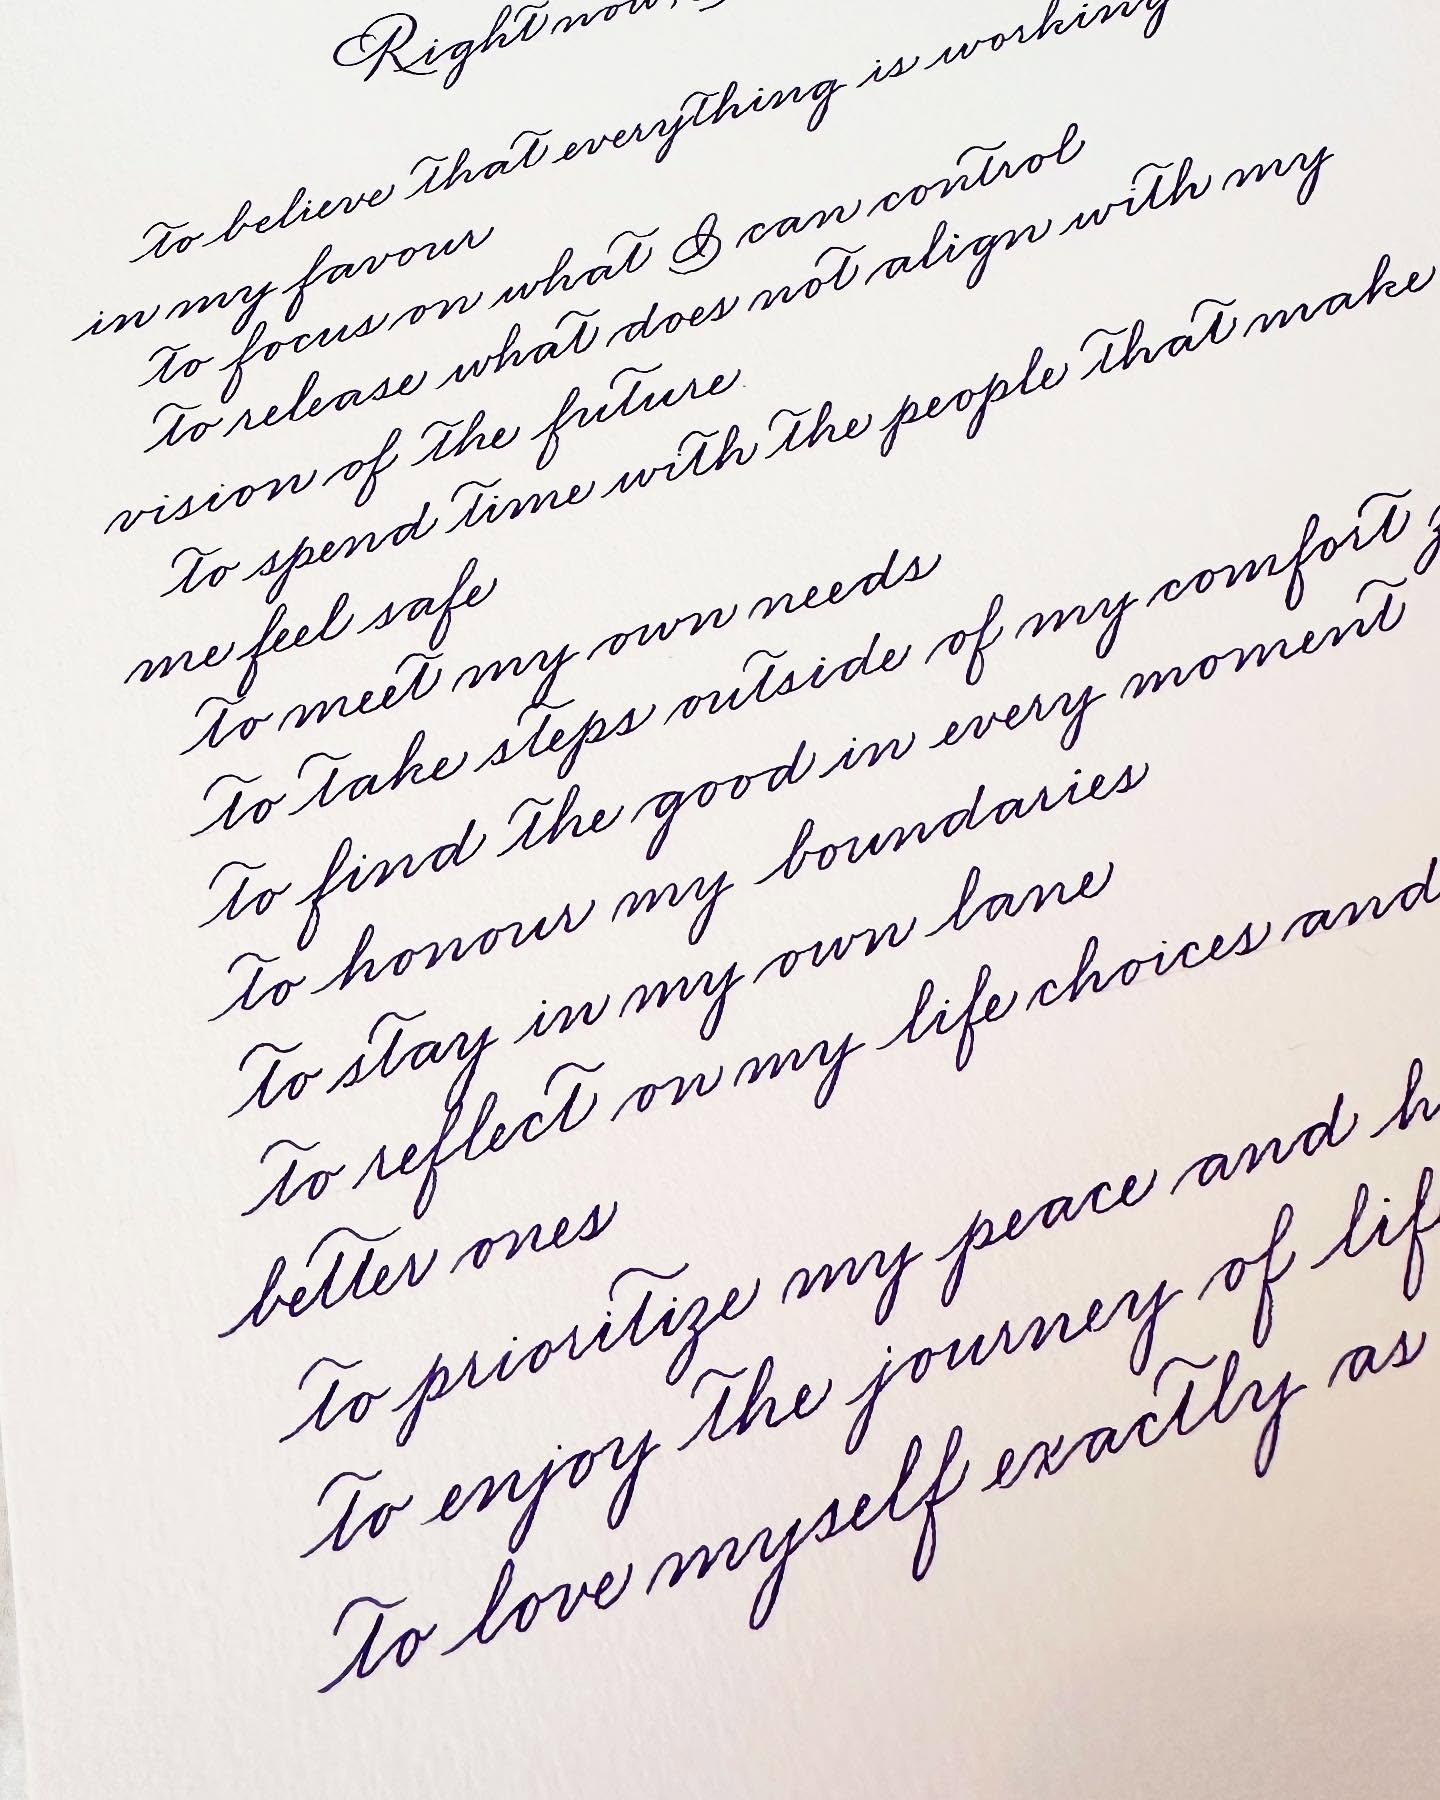 Right now,
to believe that everything is working
in my favour
to focus on what I can control
to release what does not align with my
vision of the future
to spend time with the people that make
me feel safe
to meet my own needs
to take steps outside of my comfort
to find the good in every moment
to honour my boundaries
to stay in my own lane
to reflect on my life choices and
better ones
to prioritize my peace and
to enjoy the journey of
to love myself exactly as